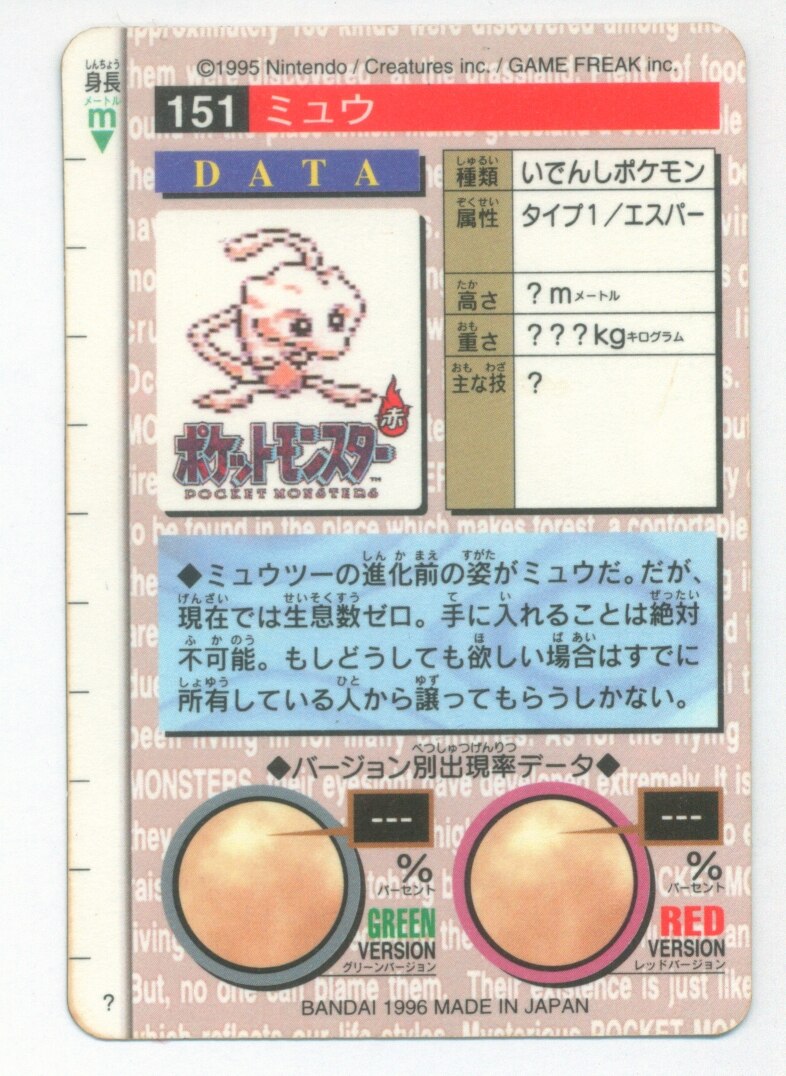 ©1995 Nintendo / Creatures inc. / GAME FREAK inc.
しんちょう
身長
メートル
m
151 ミュウ
DATA
しゅるい
種類 いでんしポケモン
ぞくせい
属性 タイプ1/エスパー
たか
高さ ?mメートル
おも
重さ ???kgキログラム
おも わざ
主な技 ?
赤
ポケットモンスター
TM
POCKET MONSTERS
しんかまえ すがた
◆ミュウツーの進化前の姿がミュウだ。だが、
げんざい せいそくすう て い ぜったい
現在では生息数ゼロ。手に入れることは絶対
ふかのう ほ ばあい
不可能。もしどうしても欲しい場合はすでに
しょゆう ひと ゆず
所有している人から譲ってもらうしかない。
べつしゅつげんりつ
◆バージョン別出現率データ◆
--- ---
% %
パーセント パーセント
GREEN RED
VERSION VERSION
グリーンバージョン レッドバージョン
?
BANDAI 1996 MADE IN JAPAN